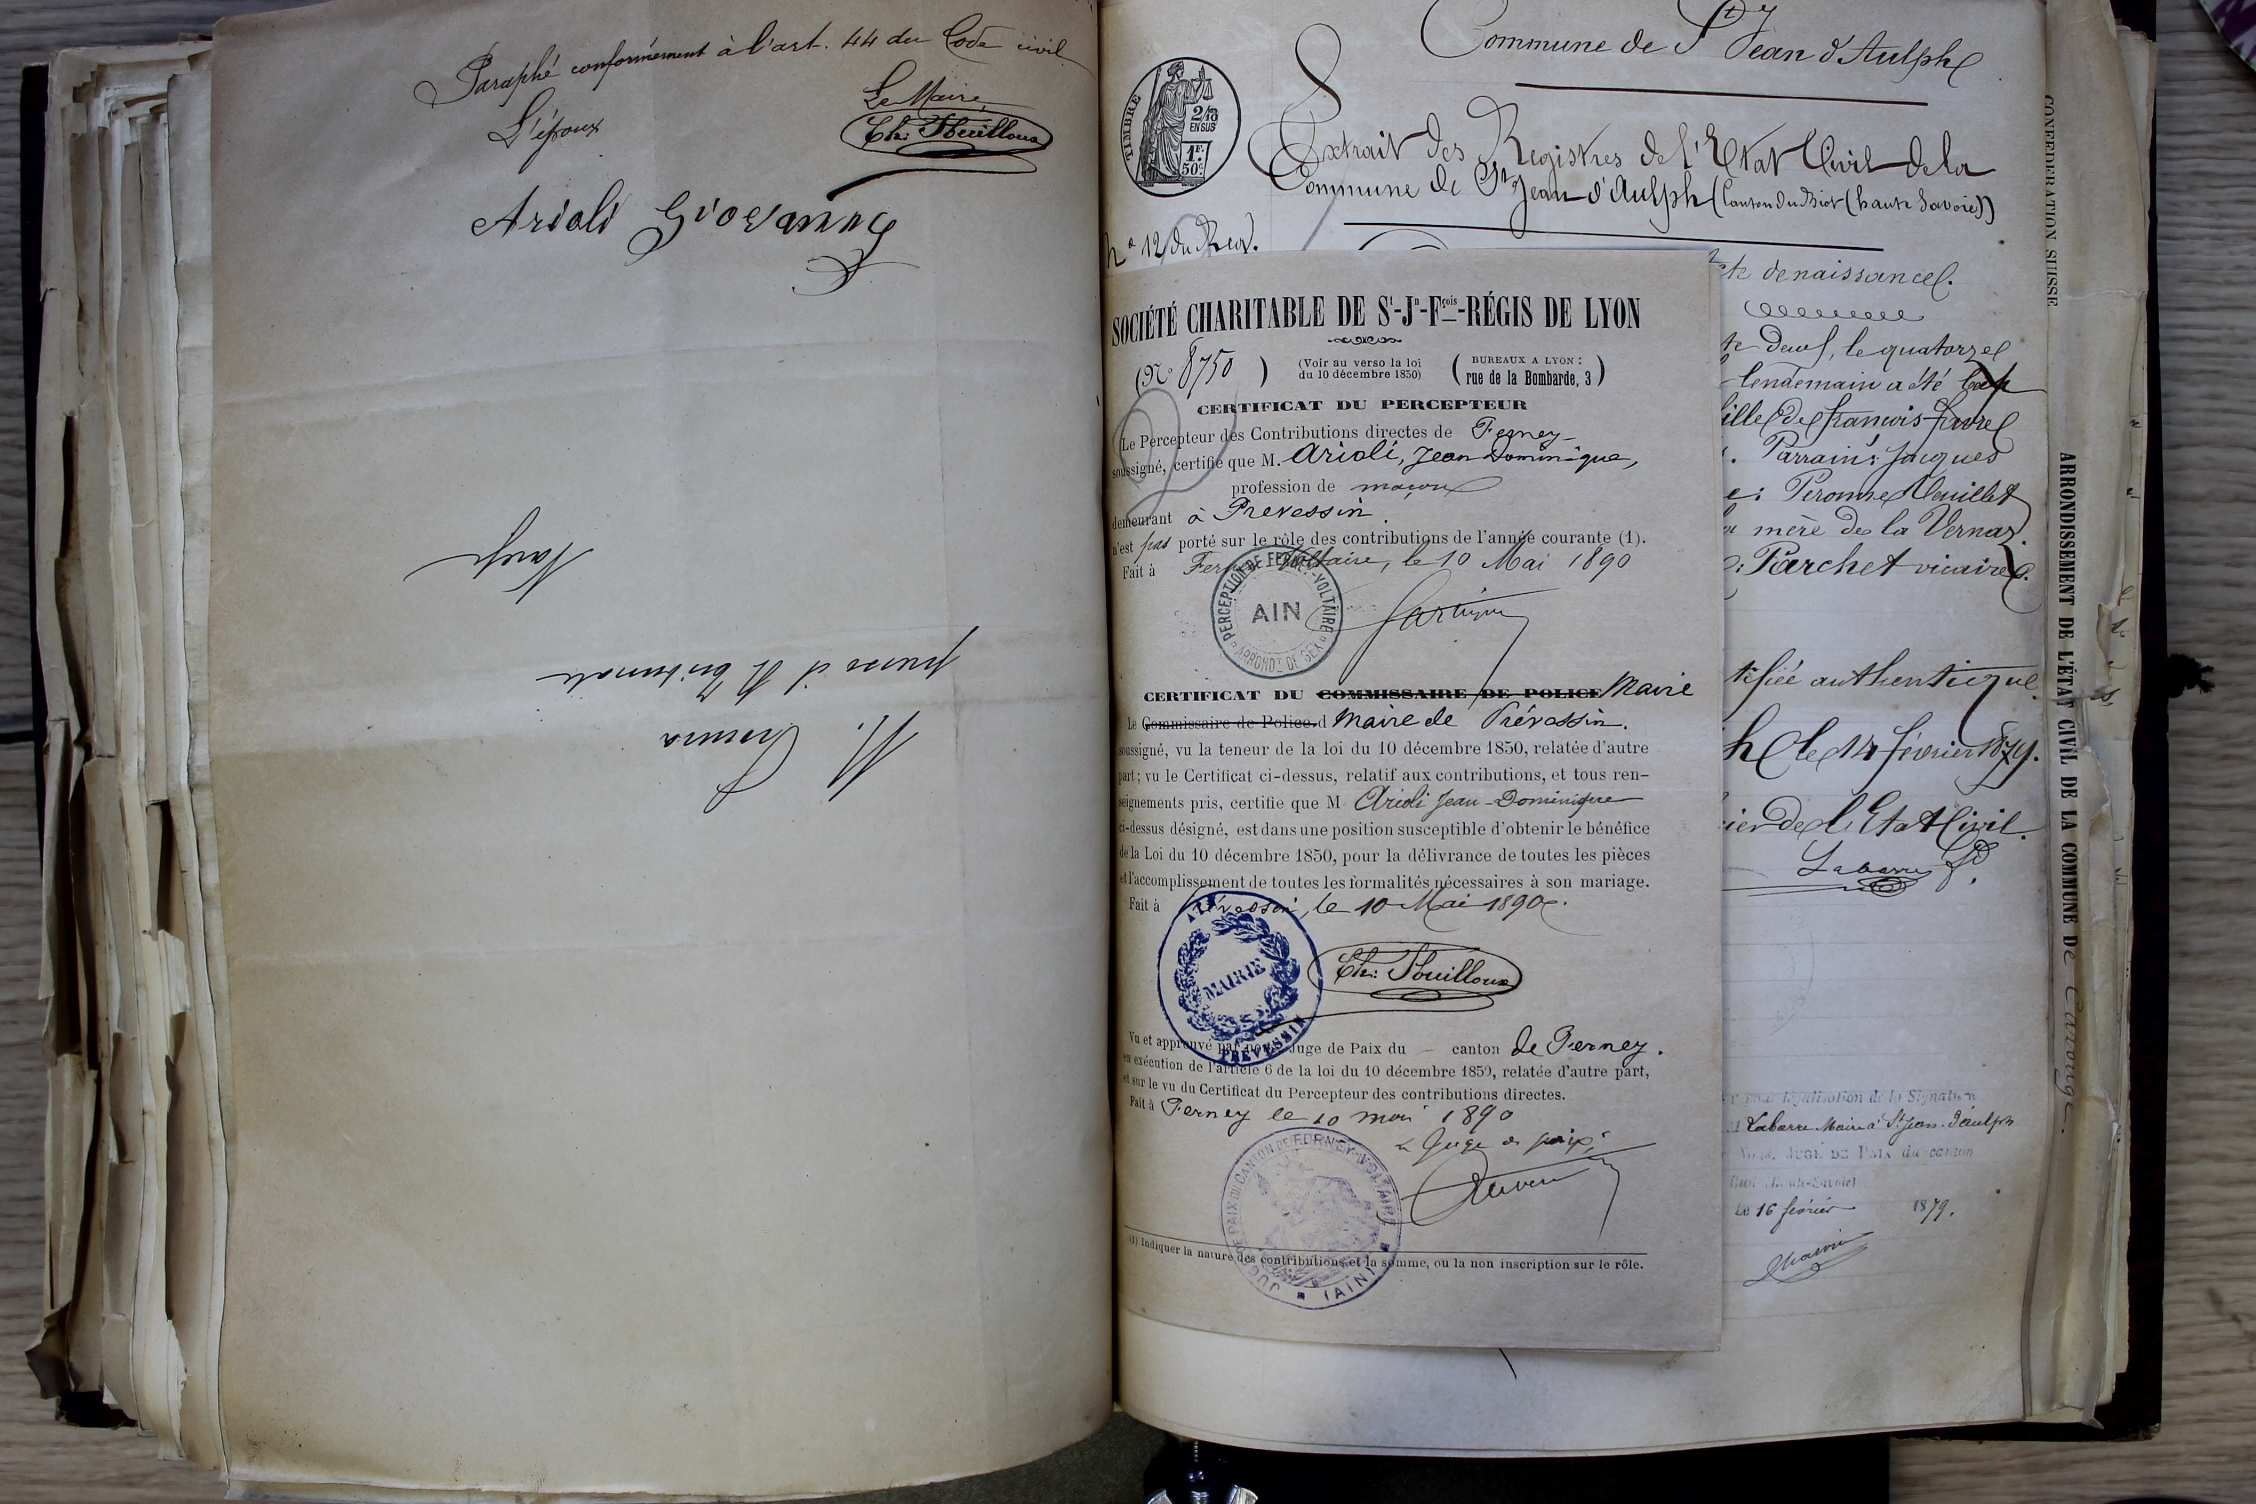 Paraphé conformément à l'art. 44 du Code civil
L'époux
Le Maire,
Arioli Giovanny
Commune de St Jean d'Aulph
TIMBRE
2/10
EN SUS
1F.
50c
Extrait des Registres de l'Etat Civil de la
Commune de St Jean d'Aulph (Canton du Biot (haute Savoie))
No 12 du
SOCIÉTÉ CHARITABLE DE St-Jn-Fçois-RÉGIS DE LYON
(No 8750)
(Voir au verso la loi
du 10 décembre 1850)
(BUREAUX A LYON:
rue de la Bombarde, 3)
CERTIFICAT DU PERCEPTEUR
Le Percepteur des Contributions directes de Ferney-
soussigné, certifie que M. Arioli, Jean Dominique,
profession de maçon
demeurant à Prevessin.
n'est pas porté sur le rôle des contributions de l'année courante (1).
Fait à Ferney Voltaire, le 10 Mai 1890
PERCEPTION DE FERNEY-VOLTAIRE
AIN
ARRONDT DE GEX
CERTIFICAT DU COMMISSAIRE DE POLICE Maire
Le Commissaire de Police d Maire de Prévessin.
soussigné, vu la teneur de la loi du 10 décembre 1850, relatée d'autre
part; vu le Certificat ci-dessus, relatif aux contributions, et tous ren-
seignements pris, certifie que M. Arioli Jean-Dominique
ci-dessus désigné, est dans une position susceptible d'obtenir le bénéfice
de la Loi du 10 décembre 1850, pour la délivrance de toutes les pièces
et l'accomplissement de toutes les formalités nécessaires à son mariage.
Fait à Prévessin, le 10 Mai 1890.
AIN
MAIRIE
PREVESSIN
Vu et approuvé par nous Juge de Paix du - canton de Ferney.
en exécution de l'article 6 de la loi du 10 décembre 1850, relatée d'autre part,
et sur le vu du Certificat du Percepteur des contributions directes.
Fait à Ferney le 10 mai 1890
Le Juge de paix,
JUGE DE PAIX DU CANTON DE FERNEY-VOLTAIRE
(AIN)
(1) Indiquer la nature des contributions et la somme, ou la non inscription sur le rôle.
de naissance.
deux, le quatorze
lendemain a été
fille de françois favre
Parrain: Jacques
Peronne
mère de la Vernaz.
Parchet vicaire.
authentique
le 14 février 1879.
de l'Etat Civil.
Labarre
légalisation de la Signature
Labarre Maire à St Jean-d'aulph
JUGE DE PAIX du canton
Le 16 février 1879.
CONFEDERATION SUISSE
ARRONDISSEMENT DE L'ÉTAT CIVIL DE LA COMMUNE DE Carouge